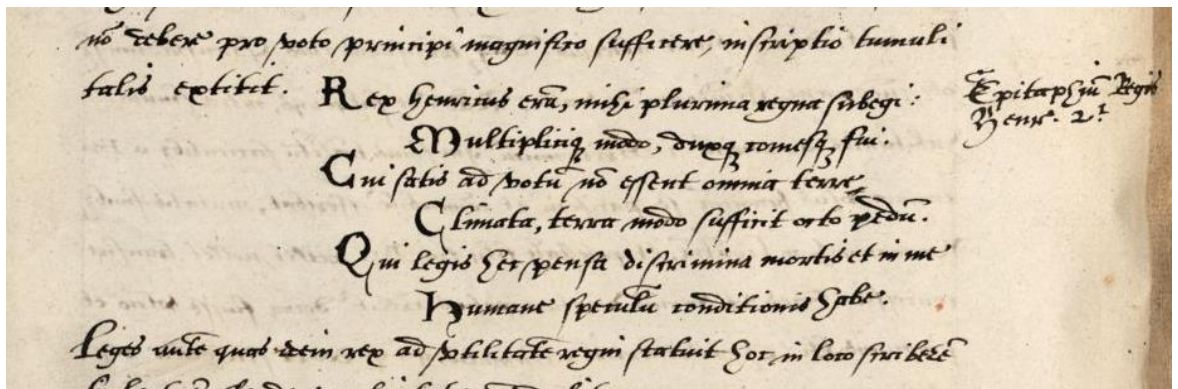 nō debere pro voto principi magnifico sufficere, inscriptio tumuli
talis extitit.
Rex henricus erā, mihi plurima regna subegi:
Multipliciqꝫ modo, duxqꝫ comesqꝫ fui.
Cui satis ad votū nō essent omnia terre
Climata, terra modo sufficit octo pedū.
Qui legis hec pensa discrimina mortis et in me
Humane speculū conditionis habe.
Leges autē quas idem rex ad vtilitatē regni statuit hoc in loco scriberē
Epitaphiū Regis
Henr. 2ⁱ